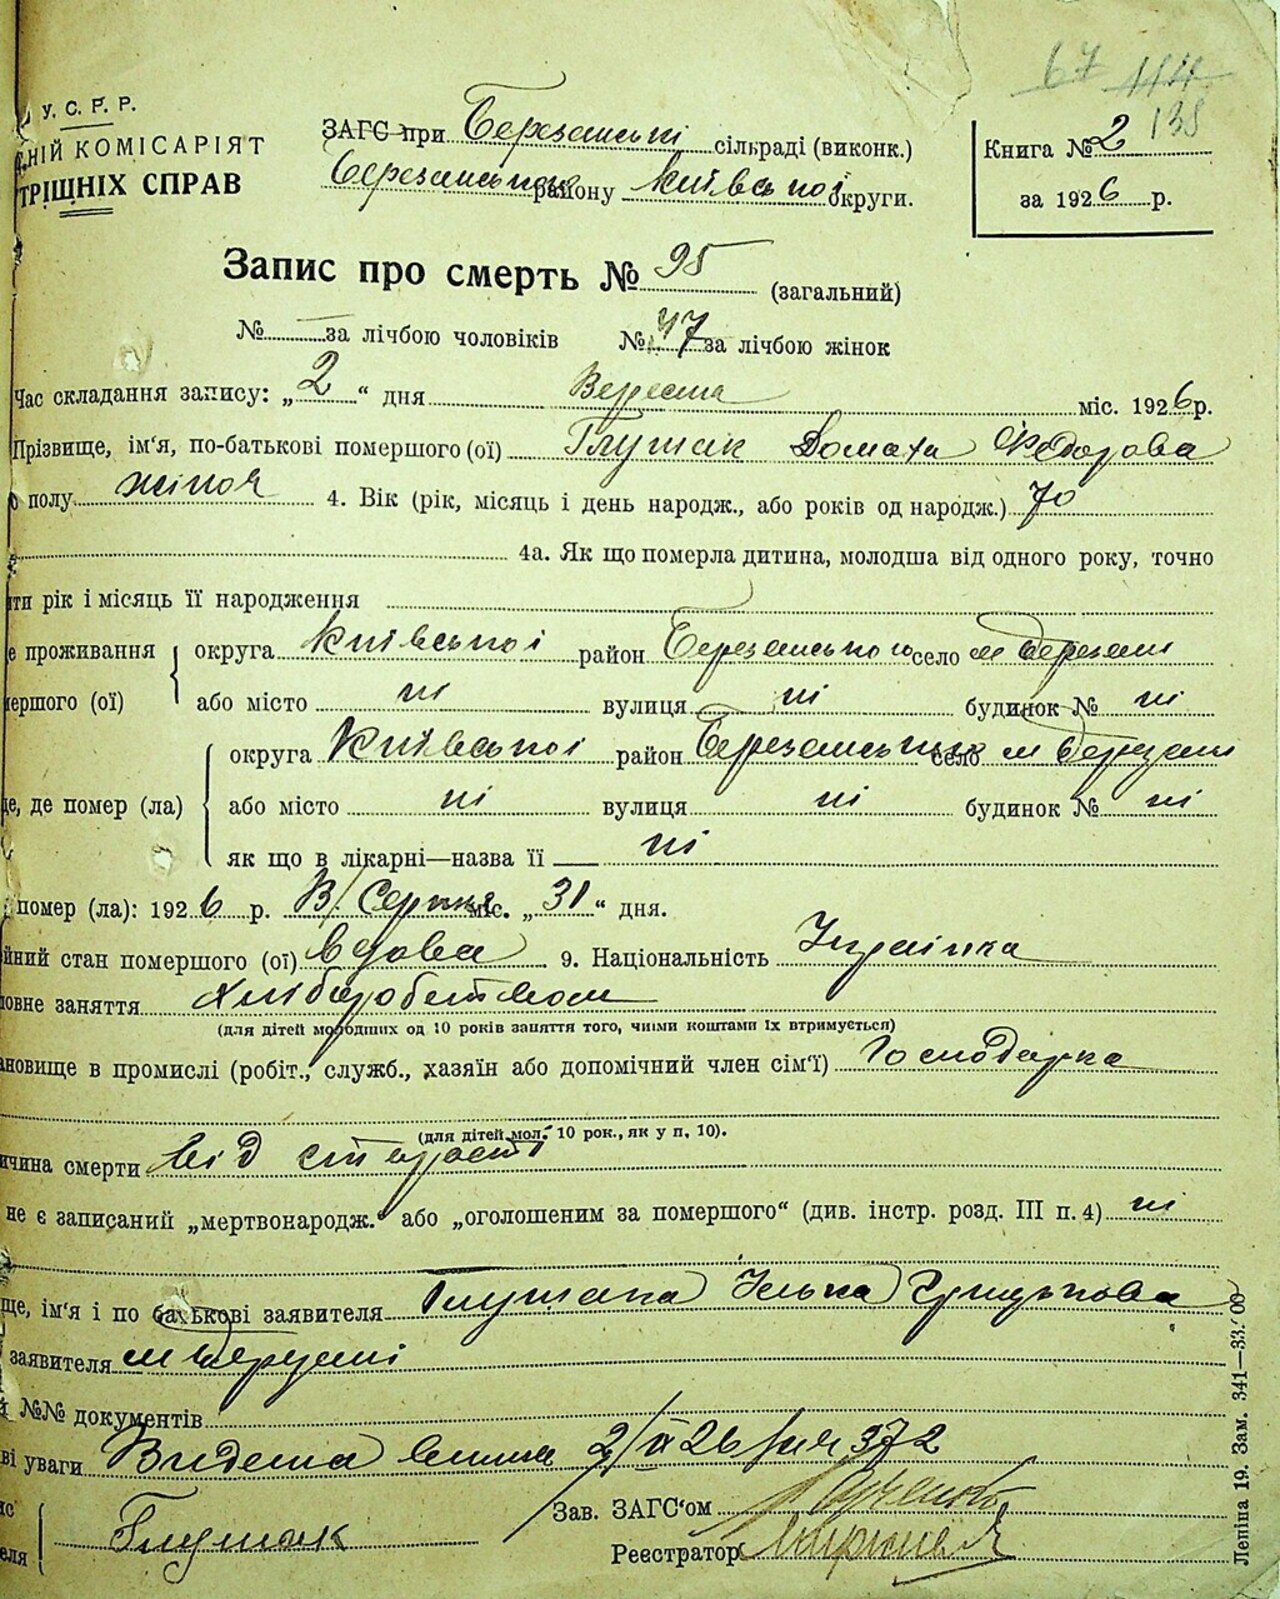 67 114
138
У. С. Р. Р.
НІЙ КОМІСАРІЯТ
ТРІШНІХ СПРАВ
ЗАГС при Березанські сільраді (виконк.)
Березанського району Київської округи.
Книга № 2
за 1926 р.
Запис про смерть № 95 (загальний)
№ — за лічбою чоловіків № 47 за лічбою жінок
Час складання запису: „2“ дня Вересня міс. 1926 р.
Прізвище, ім'я, по-батькові помершого (ої) Глушак Домаха Федорова
полу жіноч 4. Вік (рік, місяць і день народж., або років од народж.) 70
4а. Як що померла дитина, молодша від одного року, точно
ти рік і місяць її народження
е проживання округа Київської район Березанського село м Березані
мершого (ої) або місто ні вулиця ні будинок № ні
округа Київської район Березанськ село м Березані
це, де помер (ла) або місто ні вулиця ні будинок № ні
як що в лікарні—назва її ні
помер (ла): 1926 р. В/ Серпня міс. „31“ дня.
йний стан помершого (ої) вдова 9. Національність Українка
ловне заняття Хліборобством
(для дітей молодших од 10 років заняття того, чиїми коштами їх втримується)
ановище в промислі (робіт., служб., хазяїн або допомічний член сім'ї) Господарка
(для дітей мол. 10 рок., як у п. 10).
ичина смерти від старості
не є записаний „мертвонародж.“ або „оголошеним за помершого“ (див. інстр. розд. III п. 4) ні
ще, ім'я і по батькові заявителя Глушака Ілька Грицькова
заявителя м Березані
№№ документів
ві уваги Видана 2/IX 26 372
Зав. ЗАГС'ом
еля Глушак
Реєстратор
Лепіна 19. Зам. 341—33.000